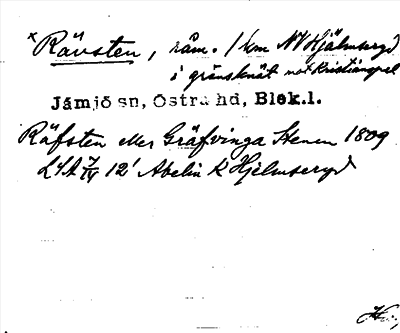 × Rävsten, råm. 1 km NV Hjälmseryd
i gränsknät mot Kristianopel
Jämjö sn, Östra hd, Blek.l.
Räfsten eller Gräfvinga Stenen 1809
LSA 7/IV 12' Abelin K Hjelmseryd